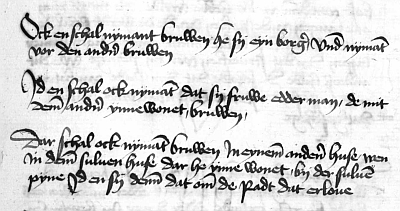 Ock en schal nymant bruwen he sy eyn borg' vnd nymāt
vor den andn̄ bruwen
Id en schal ock nymāt dat sy fruwe edder man, de mit
dem andn̄ ynne wonet bruwen,
Dar schal ock nymāt bruwen In eynem anderē huse wen
in dem suluen huse dar he ynne wonet, by der suluē
pyne Id en sy denn dat om̄ de Radt dat erloue